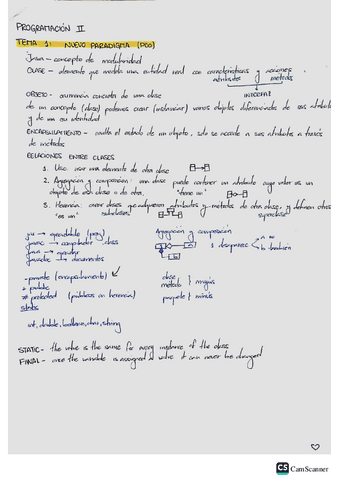 PROGRAMACIÓN II
TEMA 1: NUEVO PARADIGMA (POO)
Java - concepto de modularidad
CLASE - elemento que modela una entidad real con características y acciones
atributos métodos
INTERFAZ
OBJETO - concreta de una clase
de un concepto (clase) podemos crear (instanciar) varios objetos diferenciados de sus atributos
y de su identidad
ENCAPSULAMIENTO - oculta el estado de un objeto, solo se accede a sus atributos a través
de métodos
RELACIONES ENTRE CLASES
1. Uso: usar una elemento de otra clase
2. Agregación y composición: una clase puede contener un atributo cuyo valor es un
objeto de esa clase o de otra. "tiene un"
3. Herencia: crear clases que adquieren atributos y métodos de otra clase, y definen otros
"es un" subclases superclase
jar → (jar)
javac → compilador class
java → ejecutar
javadoc → documentos
Agregación y composición
1 desaparece
b también
- private (encapsulamiento)
+ public
# protected (públicos en herencia)
static
clase
método
mayús
paquete
minús
int, double, boolean, char, string
STATIC - the value is the same for every instance of the class
FINAL - once the variable is assigned a value it can never be changed
CS CamScanner